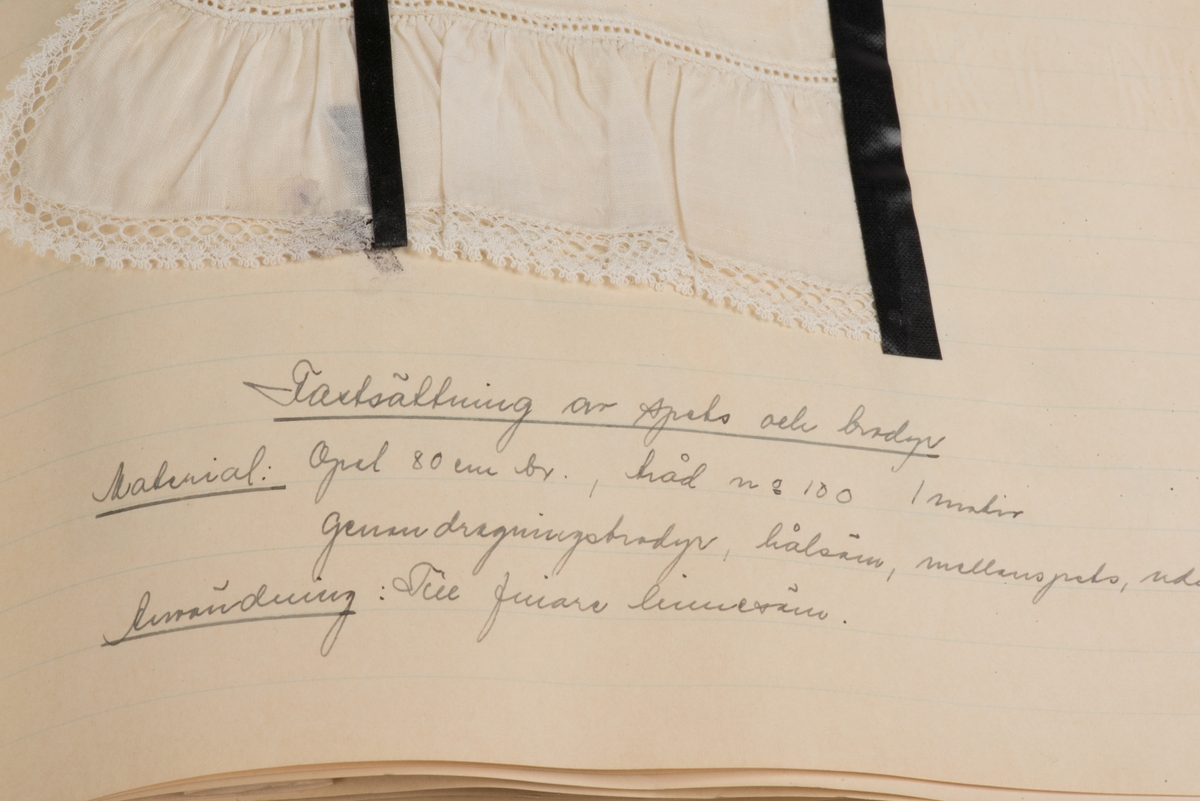 Fastsättning av spets och brodyr
Material: Opal 80 cm br., tråd nº 100 1 motiv
Genomdragningsbrodyr, hålsöm, mellanspets, udd
Användning: Till finare linnesöm.